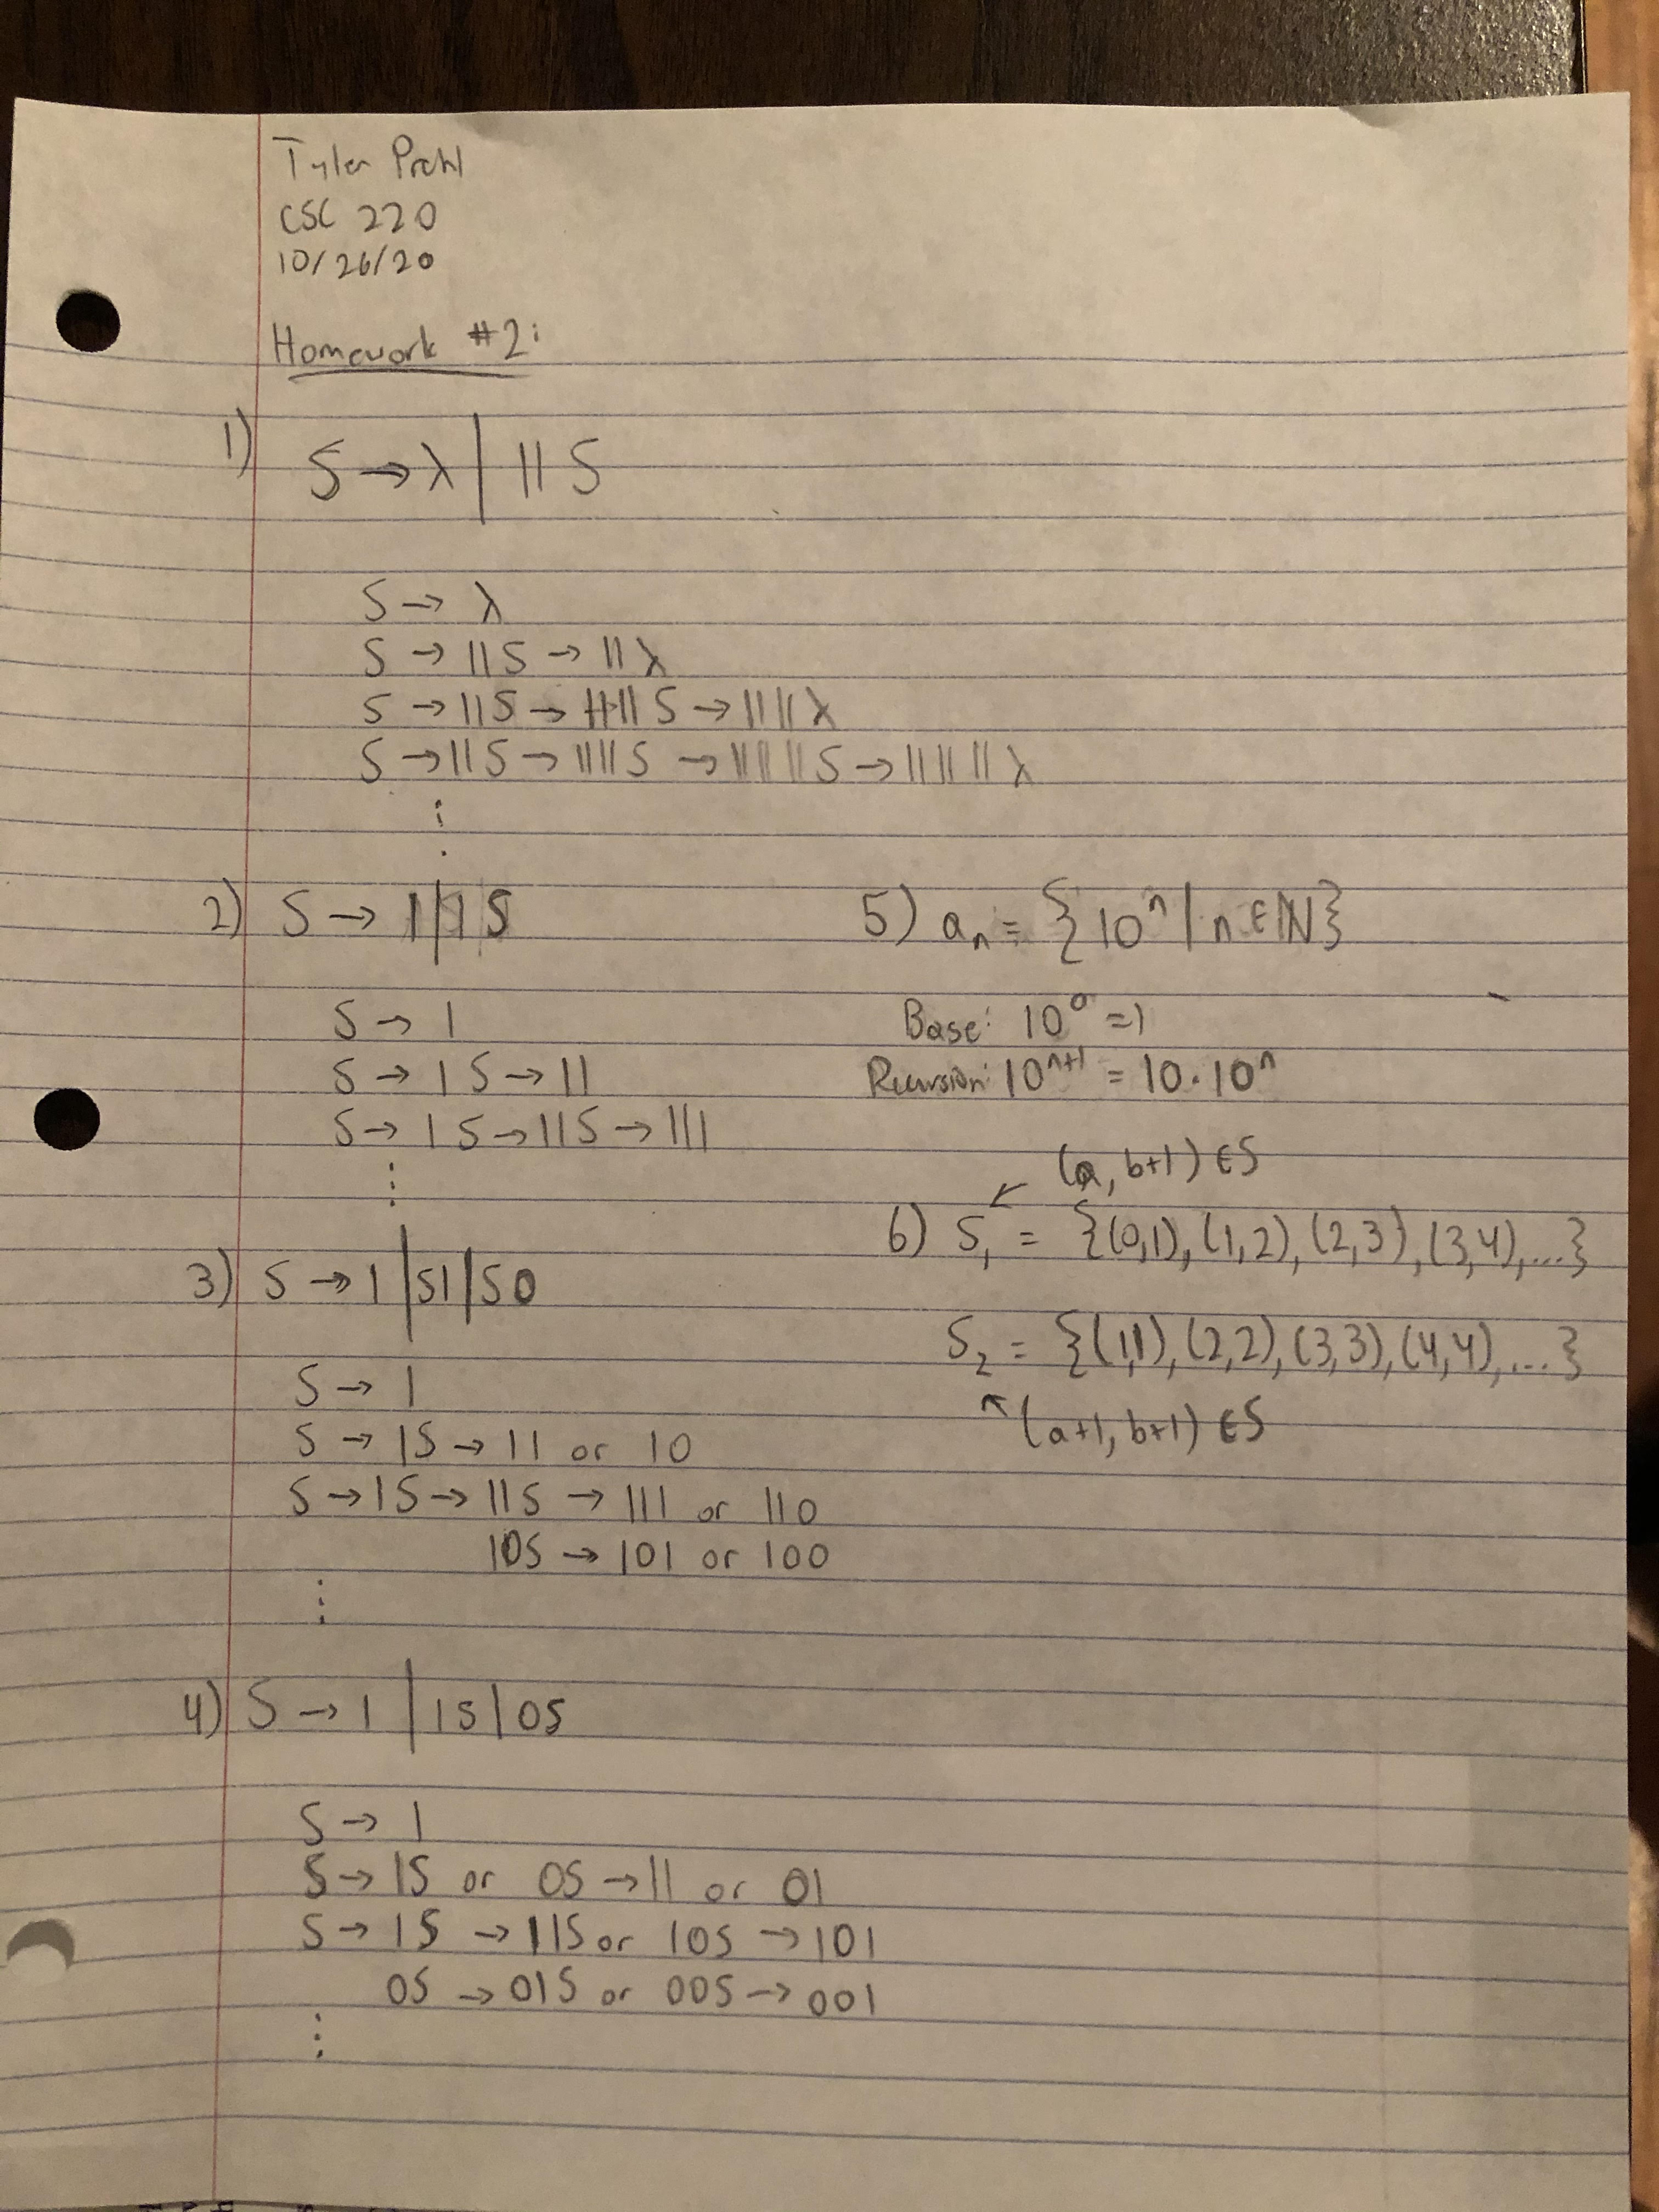 Tyler Prohl
CSC 220
10/26/20
Homework #2:
1) S → λ | 11S
S → λ
S → 11S → 11λ
S → 11S → 1111S → 1111λ
S → 11S → 1111S → 111111S → 111111λ
⋮
2) S → 1 | 1S
S → 1
S → 1S → 11
S → 1S → 11S → 111
⋮
3) S → 1 | S1 | S0
S → 1
S → 1S → 11 or 10
S → 1S → 11S → 111 or 110
10S → 101 or 100
⋮
4) S → 1 | 1S | 0S
S → 1
S → 1S or 0S → 11 or 01
S → 1S → 11S or 10S → 101
0S → 01S or 00S → 001
⋮
5) aₙ = {10ⁿ | n ∈ ℕ}
Base: 10⁰ = 1
Recursion: 10ⁿ⁺¹ = 10 · 10ⁿ
↙ (a, b+1) ∈ S
6) S₁ = {(0,1), (1,2), (2,3), (3,4), ...}
S₂ = {(1,1), (2,2), (3,3), (4,4), ...}
↖ (a+1, b+1) ∈ S